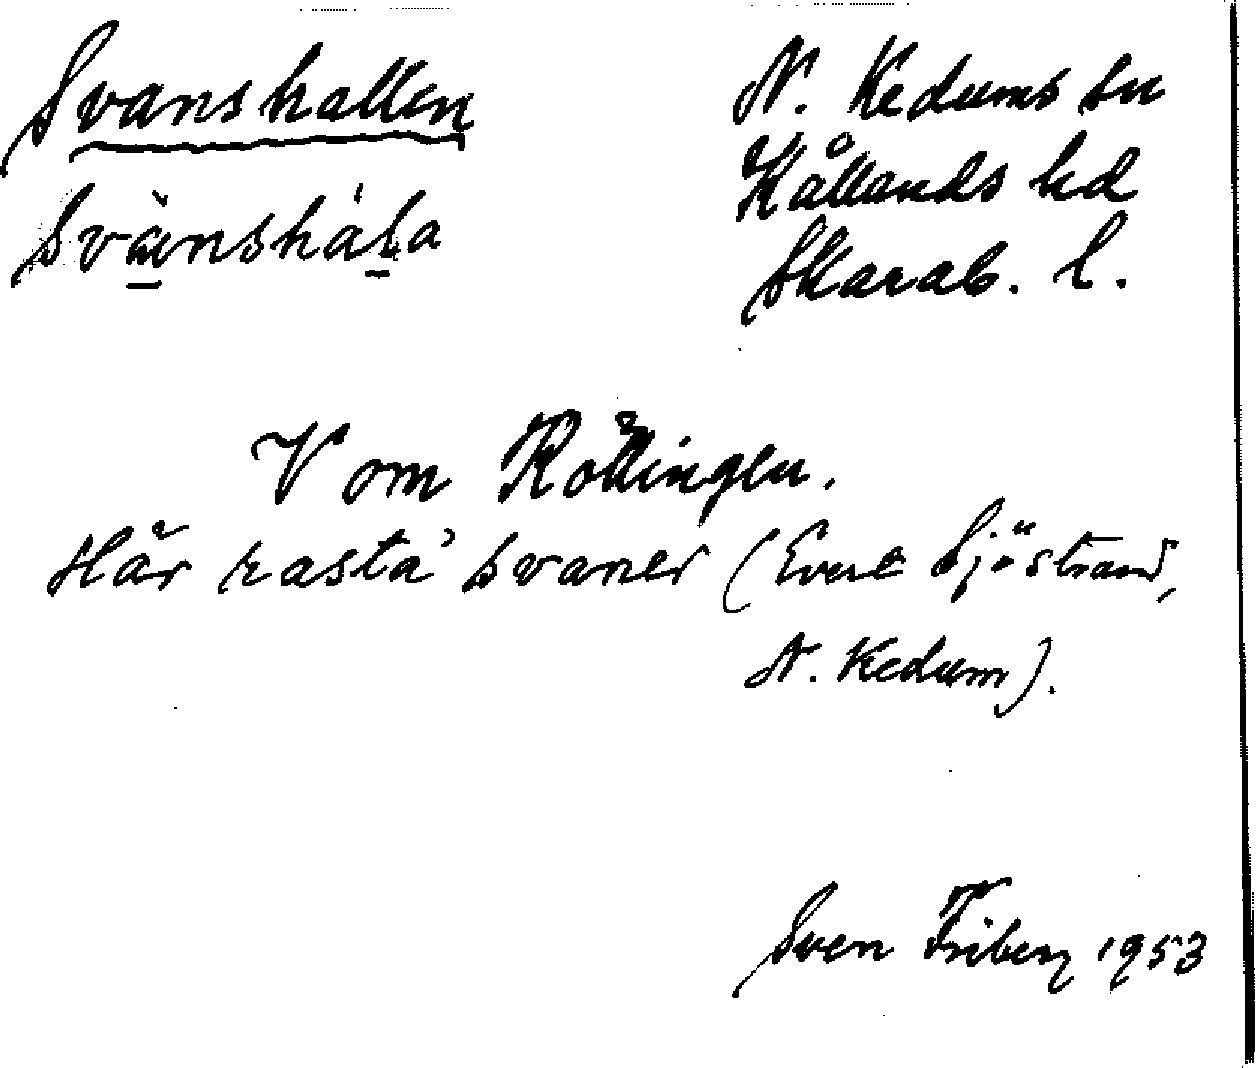 Svanshallen
Svànshála
N. Kedums sn
Kållands hd
Skarab. l.
V om Kållingen.
Här rasta' svaner (Evert Sjöstrand,
N. Kedum).
Sven Friberg 1953